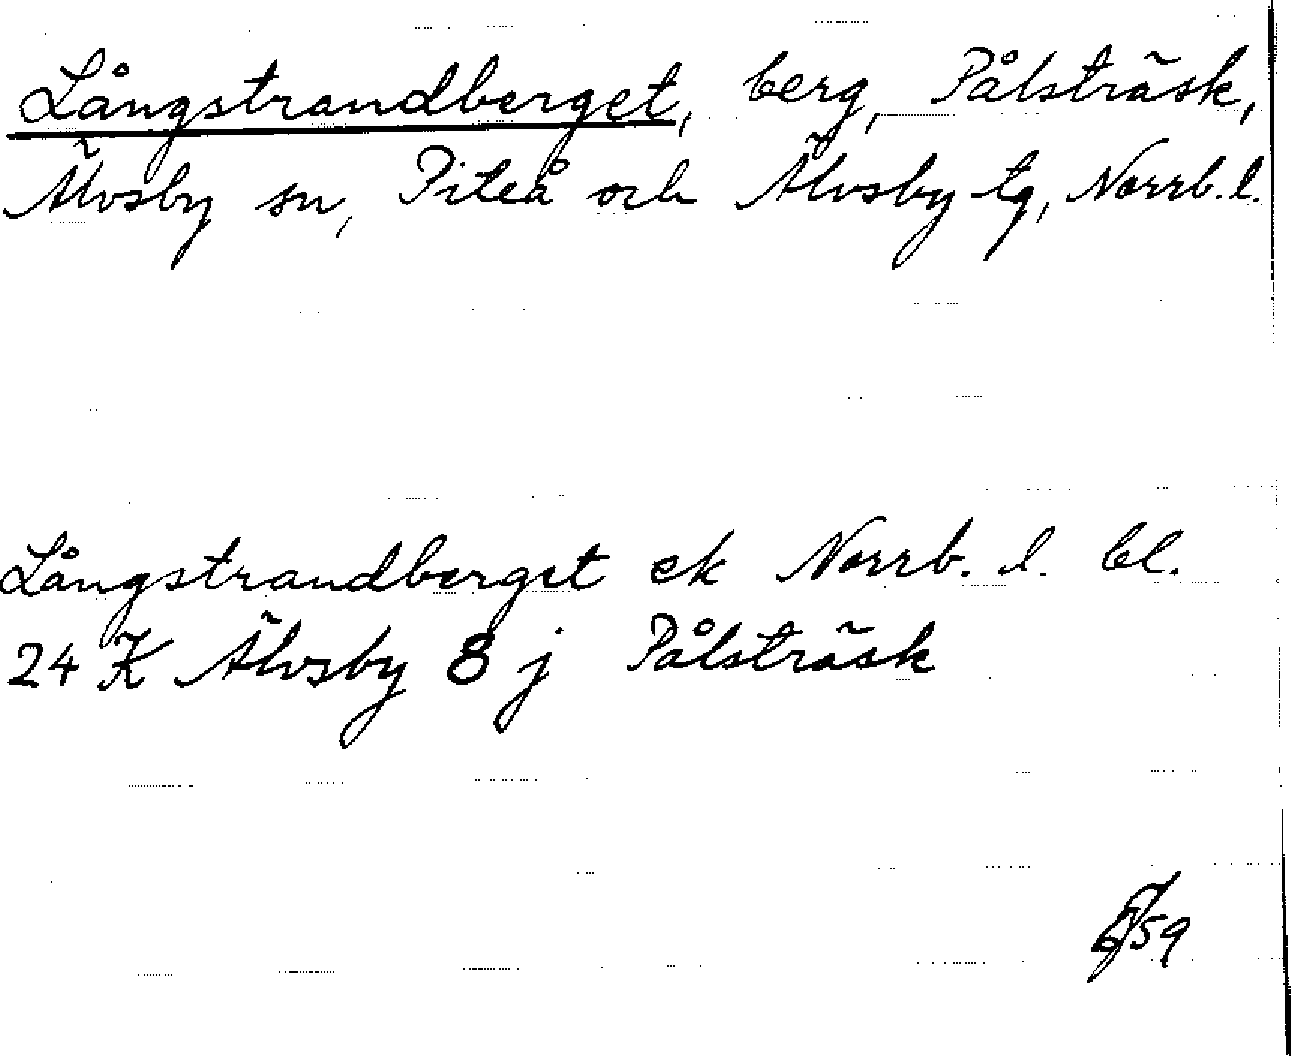 Långstrandberget, berg, Pålsträsk,
Älvsby sn, Piteå och Älvsby tg, Norrb. l.
Långstrandberget ek Norrb. l. bl.
24 K Älvsby 8 j Pålsträsk